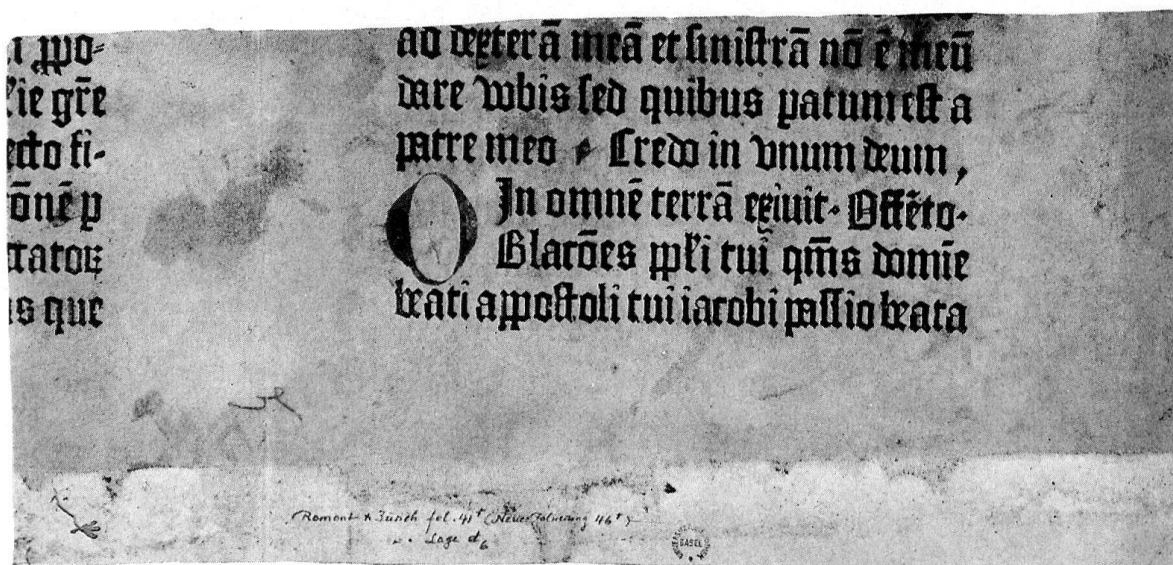 ꝓpo-
lie gr̄e
ecto fi-
ōnē p
ctatoꝝ
us que
ad dexterā meā et sinistrā nō ē meū
dare vobis sed quibus paratum est a
patre meo Credo in vnum deum,
In omnē terrā exiuit. Offēto.
OBlacōes ppl'i tui qm̄s domīe
beati appostoli tui iacobi passio beata
Romont & Zürich fol. 41r (Neue Foliierung 46r)
Lage d6
BASEL